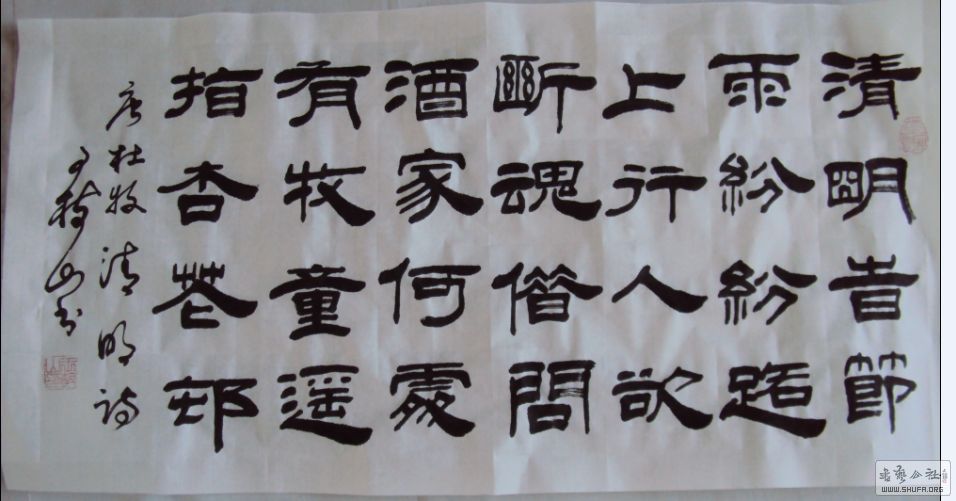 清明旹節
雨紛紛路
上行人欲
斷魂借問
酒家何處
有牧童遥
指杏花邨
唐杜牧清明诗
山书
书艺公社
WWW.SHUFA.ORG